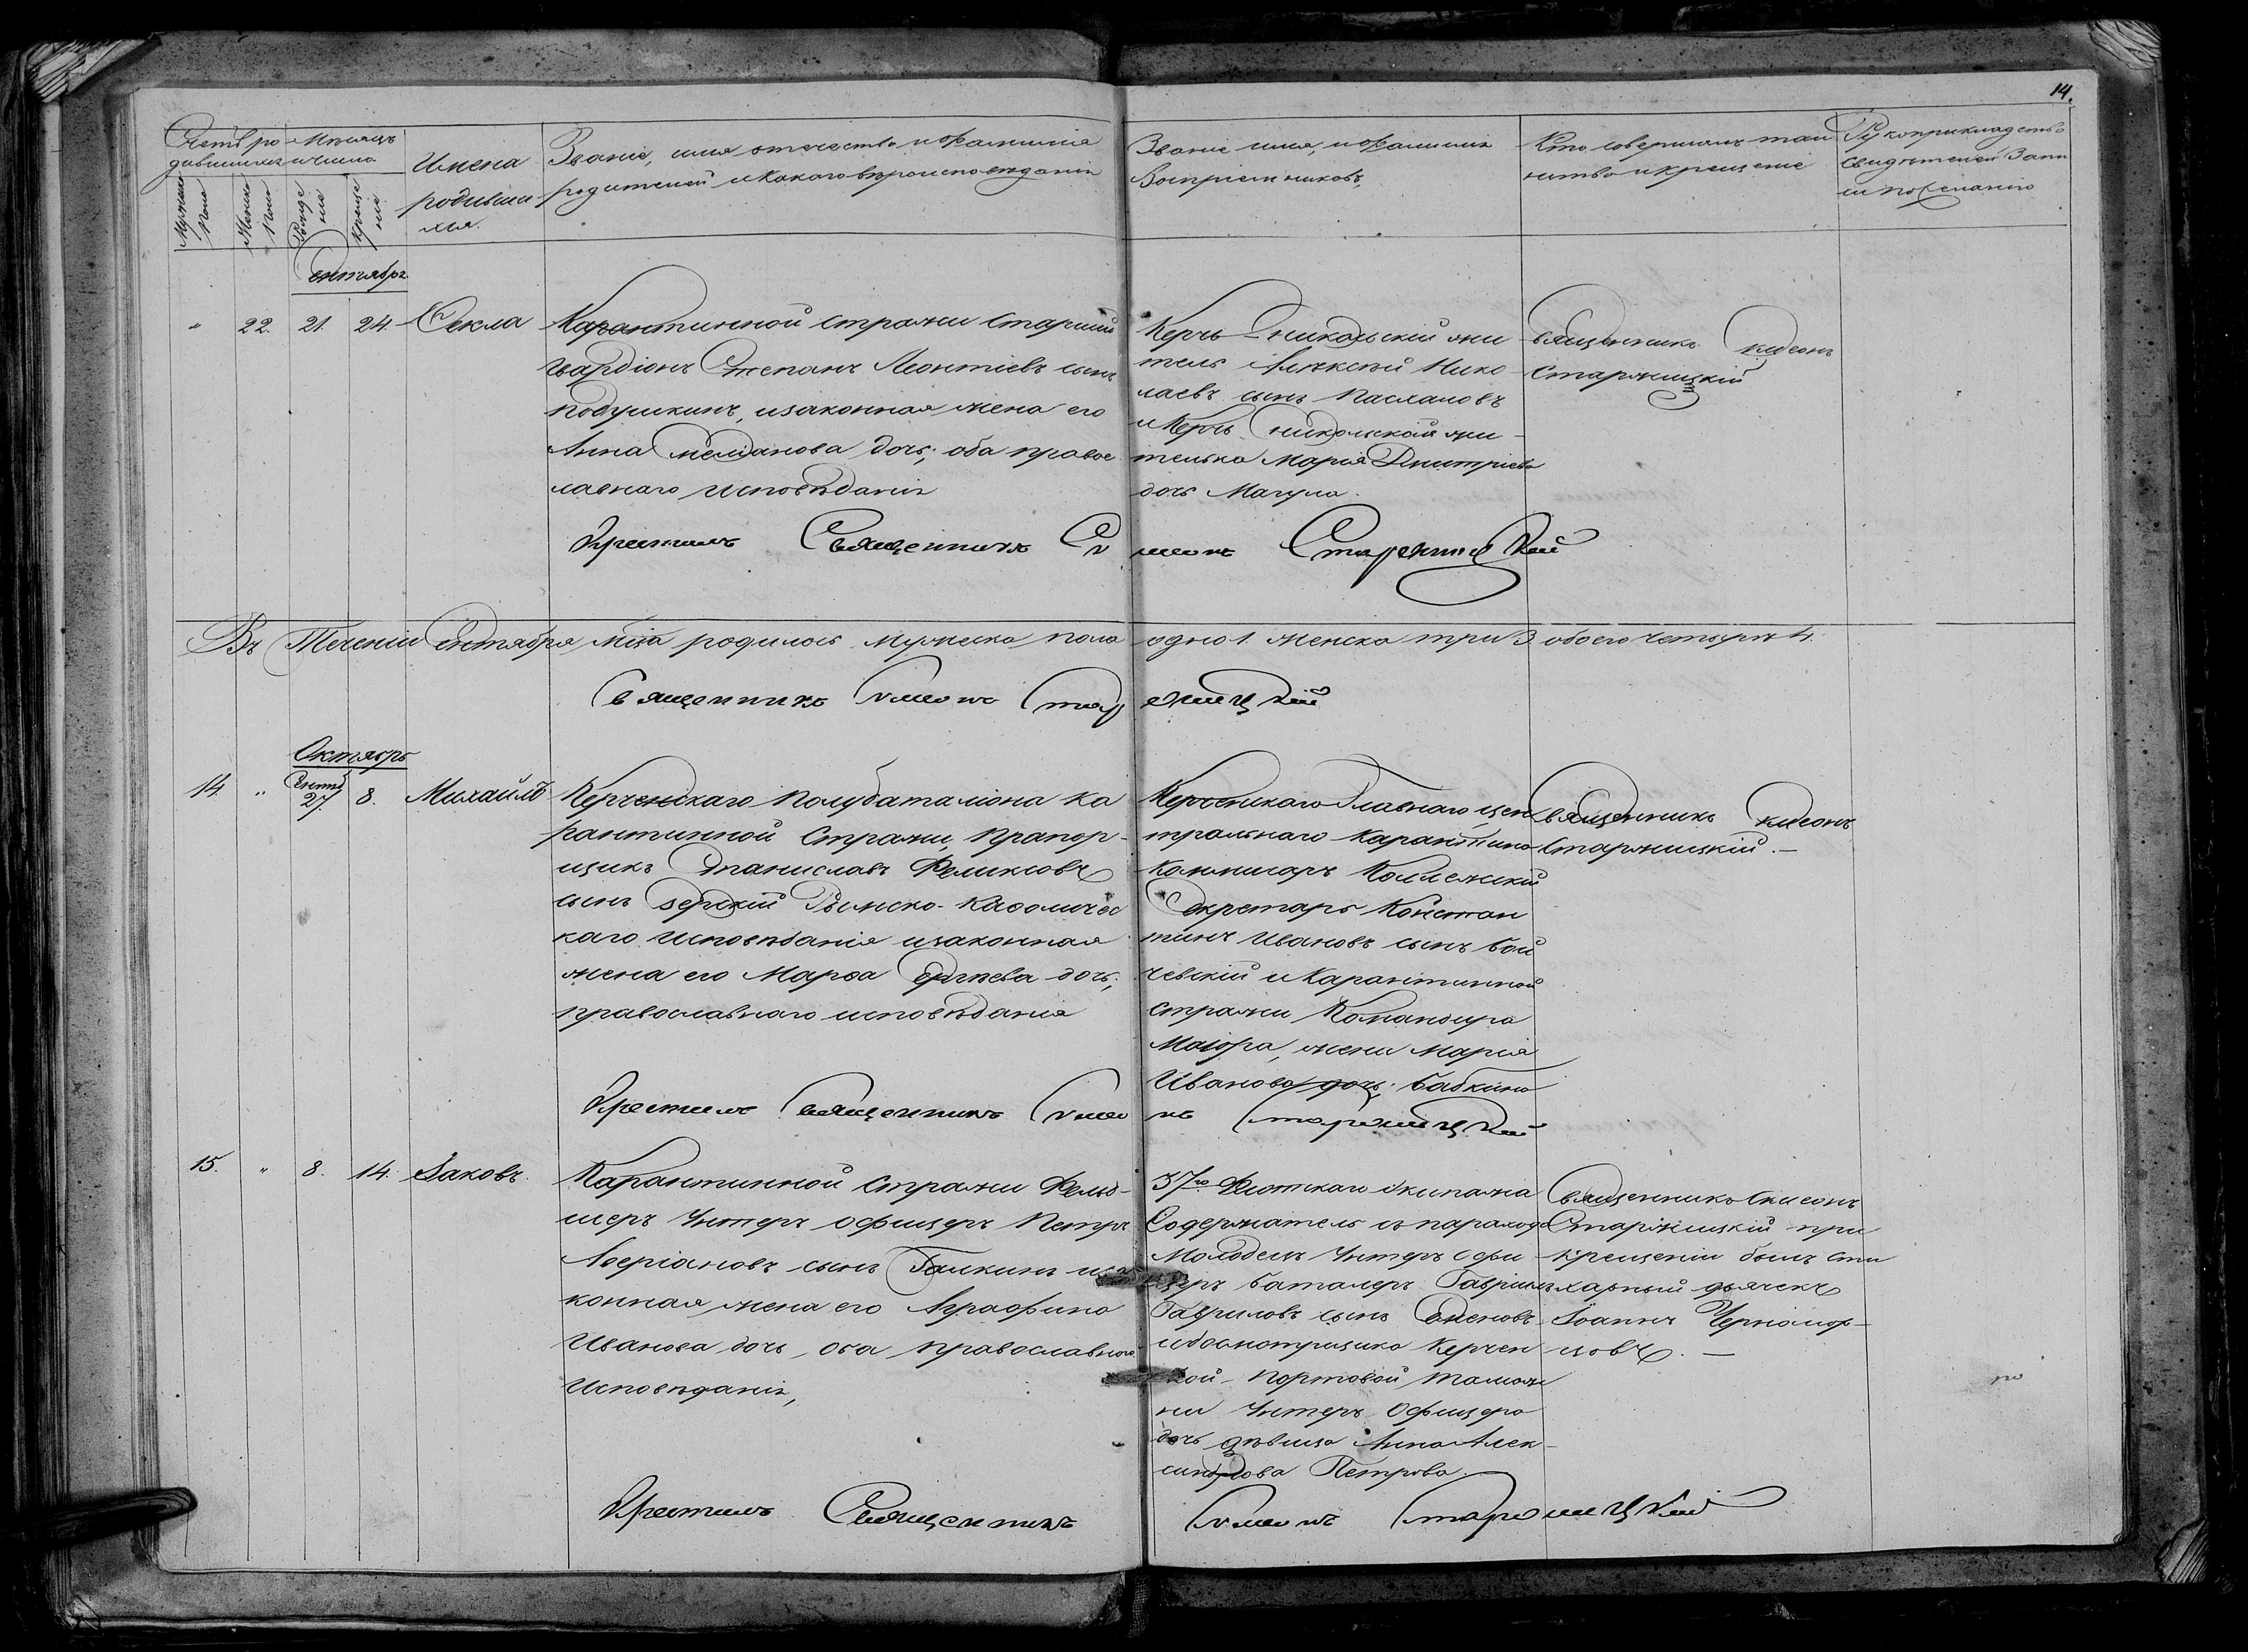 14.
Счетъ ро
дившихся
Мѣсяцъ
и число
Мужеска
пола
Женска
пола
Рожде
ние
Креще
ние
Имена
родивши
хся.
Званіе, имя отечество и фамилія
родителей и какого вѣроисповѣданія
Званіе имя, и фамилія
Воспріемниковъ,
Кто совершалъ таи
нство крещенія
Рукоприкладство
свидѣтелей запи
си по желанію
Сентябрь
" 22. 21. 24. Секла
Карантинной стражи старшій
гвардіонъ Степанъ Леонтіевъ сынъ
Подушкинъ, и законная жена его
Анна Степанова дочь; оба правос
лавнаго исповѣданія
Керчь Еникольскій жи
тель Алексѣй Нико
лаевъ сынъ Пасхаловъ
и Керчь Еникольская жи
телька Марія Дмитріева
дочь Магула.
Священникъ Симеонъ
Старжицкій
Крестилъ Священникъ Симеонъ Старжицкій
Въ Теченіи Сентября мѣсца родилось мужеска пола одно 1. женска три 3 обоего четыре 4.
Священникъ Симеонъ Старжицкій
Октябрь
14. " Сентб 27. 8. Михаилъ
Керченскаго Полубаталіона ка
рантинной Стражи, Прапор
щикъ Станиславъ Феликсовъ
сынъ Зерскій Римско-Каѳоличес
каго исповѣданія и законная
жена его Марѳа Сергѣева дочь,
православнаго исповѣданія
Керченскаго Главнаго цен
тральнаго Карантина
Коммисаръ Коллежскій
Секретарь Констан
тинъ Ивановъ сынъ Бой
чевскій и Карантинной
стражи Командира
Маіора, жена Марія
Иванова дочь; Бабкина
Священникъ Симеонъ
Старжицкій. —
Крестилъ Священникъ Симеонъ Старжицкій
15. " 8. 14. Іаковъ.
Карантинной Стражи Фельд
шеръ Унтеръ офицеръ Петръ
Аверіановъ сынъ Галкинъ и за
конная жена его Аграфина
Иванова дочь, оба православнаго
Исповѣданія,
37го Флотскаго Экипажа
Содержатель съ парахода
Молодецъ Унтеръ Офи
церъ баталеръ Гавріилъ
Гавриловъ сынъ Семеновъ
и досмотрщика Керчен
ской Портовой Таможе
ни Унтеръ Офицера
дочь дѣвица Анна Алек
сандрова Петрова.
Священникъ Симеонъ
Старжицкій при
крещеніи былъ сти
харный дьячекъ
Іоаннъ Черномор
цовъ. —
Крестилъ Священникъ Симеонъ Старжицкій